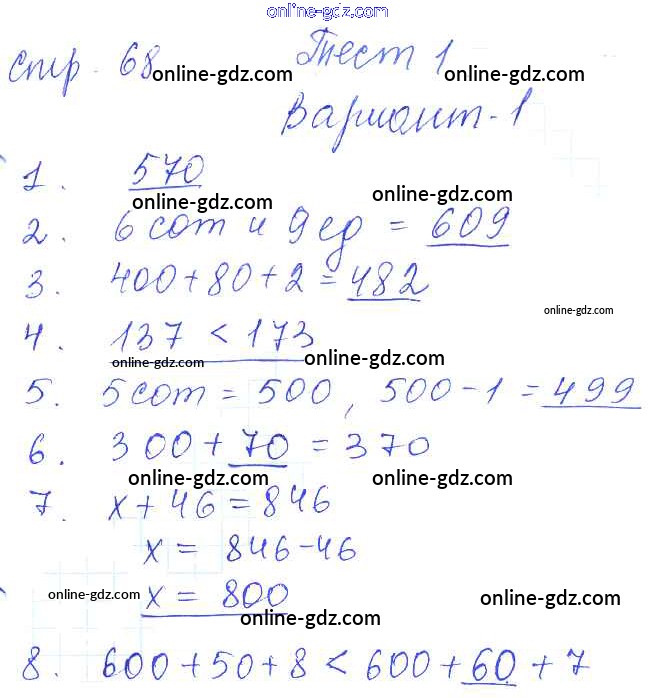 online-gdz.com
стр. 68 online-gdz.com Тест 1 online-gdz.com
Вариант-1
1. 570
online-gdz.com online-gdz.com
2. 6 сот и 9 ед = 609
3. 400+80+2=482
online-gdz.com
4. 137 < 173
online-gdz.com online-gdz.com
5. 5 сот = 500, 500-1 = 499
6. 300+70=370
online-gdz.com online-gdz.com
7. x+46=846
x = 846-46
online-gdz.com x = 800 online-gdz.com
8. 600+50+8 < 600+60+7